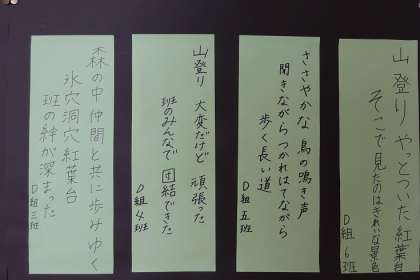 山登りやとついた紅葉台
そこで見たのはきれいな景色
D組6班
ささやかな鳥の鳴き声
聞きながらつかれはてながら
歩く長い道
D組五班
山登り大変だけど頑張った
班のみんなで団結できた
D組4班
森の中仲間と共に歩みゆく
氷穴洞穴紅葉台
班の絆が深まった
D組三班